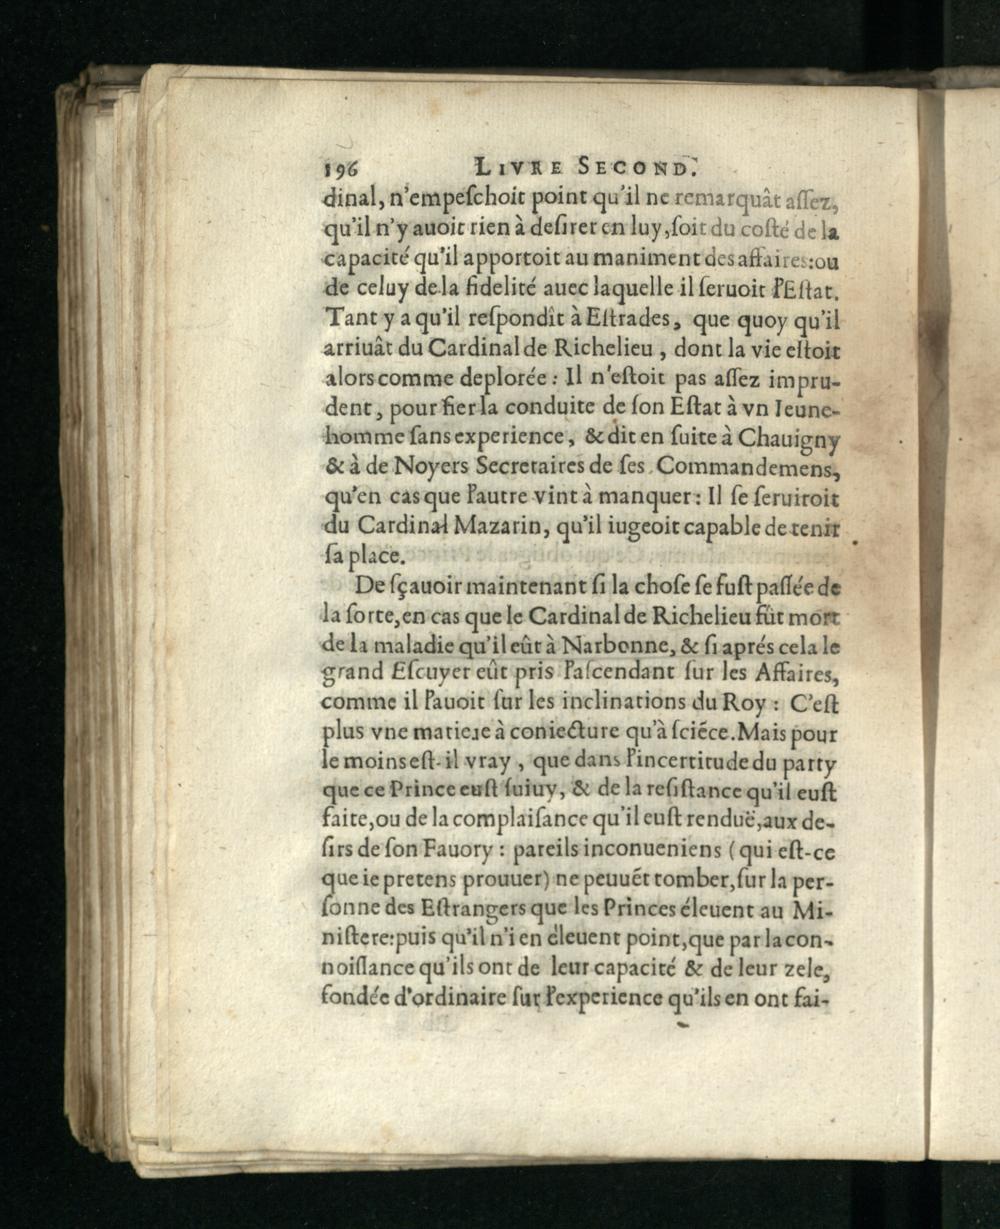 196 LIVRE SECOND.
dinal, n'empeſchoit point qu'il ne remarquât aſſez,
qu'il n'y auoit rien à deſirer en luy, ſoit du coſté de la
capacité qu'il apportoit au maniment des affaires: ou
de celuy de la fidelité auec laquelle il ſeruoit l'Eſtat.
Tant y a qu'il reſpondît à Eſtrades, que quoy qu'il
arriuât du Cardinal de Richelieu, dont la vie eſtoit
alors comme deplorée: Il n'eſtoit pas aſſez impru-
dent, pour fier la conduite de ſon Eſtat à vn Ieune-
homme ſans experience, & dit en ſuite à Chauigny
& à de Noyers Secretaires de ſes Commandemens,
qu'en cas que l'autre vint à manquer: Il ſe ſeruiroit
du Cardinal Mazarin, qu'il iugeoit capable de tenir
ſa place.
De ſçauoir maintenant ſi la choſe ſe fuſt paſſée de
la ſorte, en cas que le Cardinal de Richelieu fût mort
de la maladie qu'il eût à Narbonne, & ſi aprés cela le
grand Eſcuyer eût pris l'aſcendant ſur les Affaires,
comme il l'auoit ſur les inclinations du Roy: C'eſt
plus vne matiere à coniecture qu'à ſciẽce. Mais pour
le moins eſt-il vray, que dans l'incertitude du party
que ce Prince euſt ſuiuy, & de la reſiſtance qu'il euſt
faite, ou de la complaiſance qu'il euſt renduë, aux de-
ſirs de ſon Fauory: pareils inconueniens (qui eſt-ce
que ie pretens prouuer) ne peuuẽt tomber, ſur la per-
ſonne des Eſtrangers que les Princes éleuent au Mi-
niſtere: puis qu'il n'i en éleuent point, que par la con-
noiſſance qu'ils ont de leur capacité & de leur zele,
fondée d'ordinaire ſur l'experience qu'ils en ont fai-